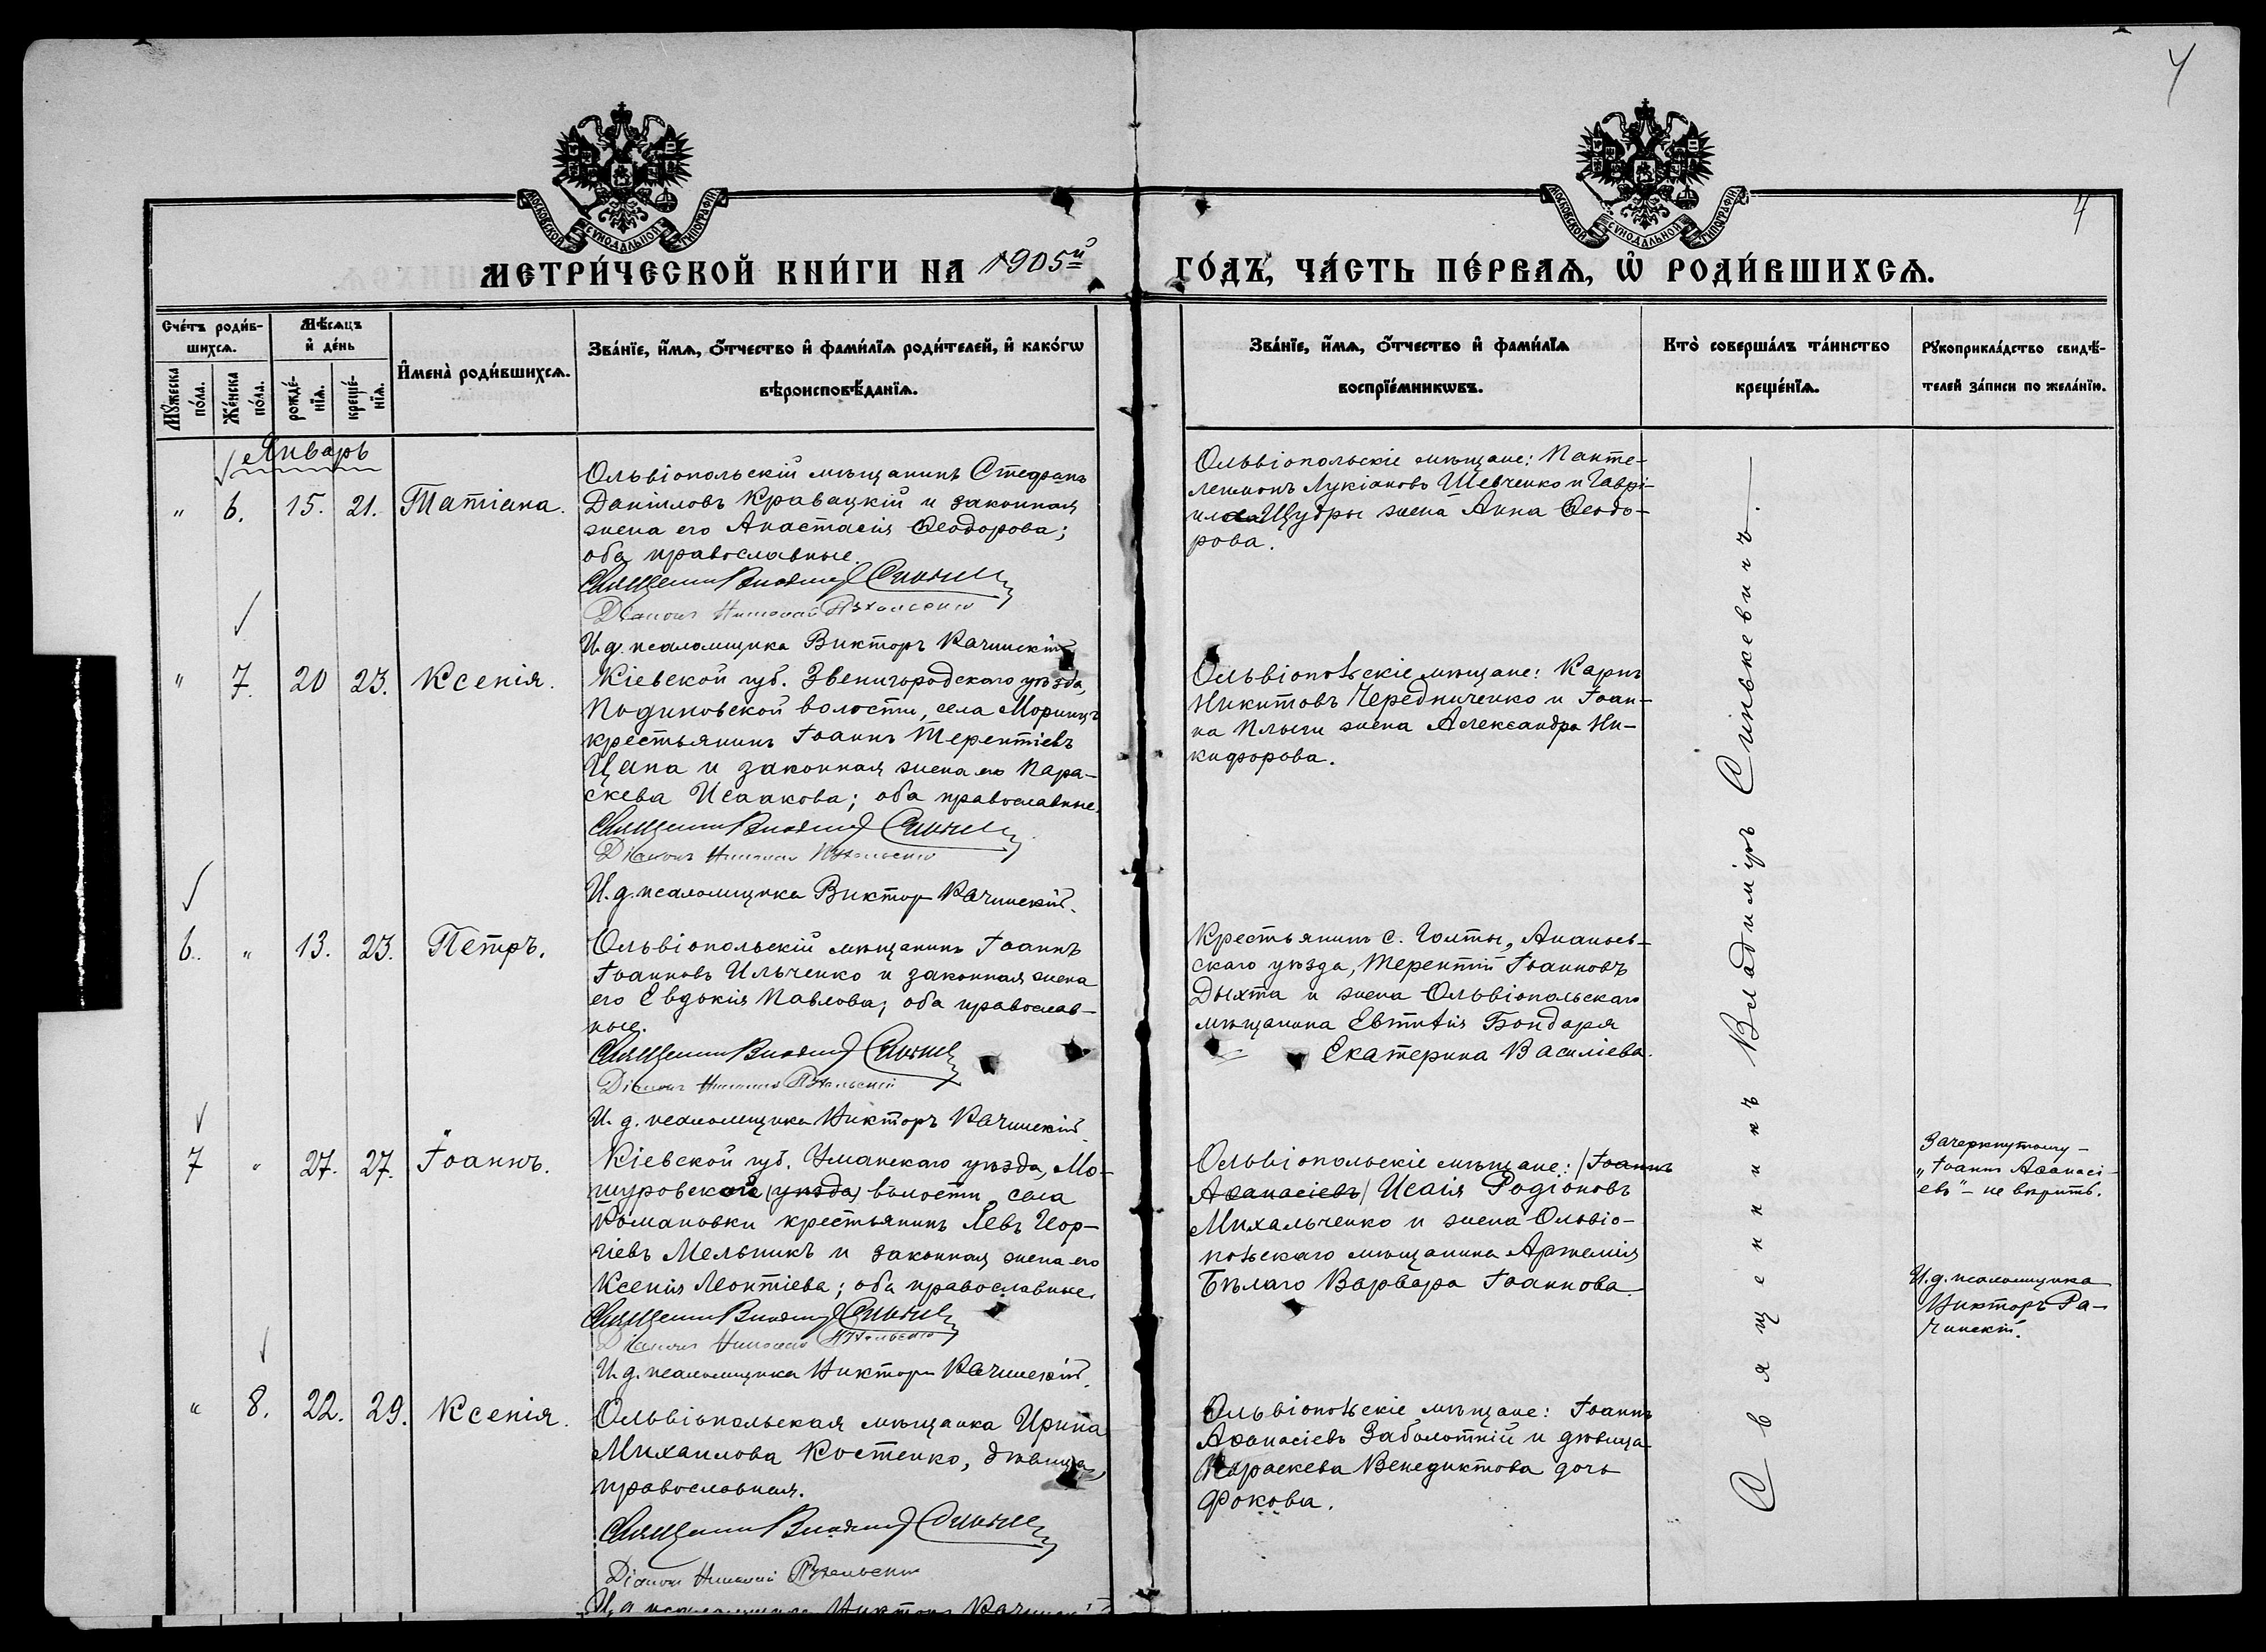 4
4
МОСКОВСКОЙ СУНОДАЛЬНОЙ ТИПОГРАФІИ
МОСКОВСКОЙ СУНОДАЛЬНОЙ ТИПОГРАФІИ
МЕТРИ́ЧЕСКОЙ КНИ́ГИ НА 1905й ГО́ДЪ, ЧА́СТЬ ПЕ́РВАѦ, Ѡ РОДИ́ВШИХСѦ.
Сче́тъ роди́в-
шихсѧ.
Мꙋжеска по́ла.
Же́нска по́ла.
Мѣ́сѧцъ
и де́нь
рожде́-нїѧ.
креще́-нїѧ.
Имена̀ роди́вшихсѧ.
Зва́нїе, и́мѧ, о́тчество и фами́лїѧ роди́телей, и како́гѡ
вѣроисповѣ́данїѧ.
Зва́нїе, и́мѧ, о́тчество и фами́лїѧ
воспрїе́мникѡвъ.
Кто̀ соверша́лъ та́инство
креще́нїѧ.
Рꙋкоприкла́дство свидѣ́-
телей за́писи по жела́нїю.
Январь
" 6. 15. 21. Татіана.
Ольвіопольскій мѣщанинъ Стефанъ
Даніиловъ Кравацкій и законная
жена его Анастасія Ѳеодорова;
оба православные.
Священникъ Владиміръ Синькевичъ
Діаконъ Николай
И.д. псаломщика Викторъ Рачинскій
Ольвіопольскіе мѣщане: Панте-
леимонъ Лукіановъ Шевченко и Гаврі-
ила Щудры жена Анна Ѳеодо-
рова.
" 7. 20 23. Ксенія.
Кіевской губ. Звенигородскаго уѣзда,
волости, села Моринцъ
крестьянинъ Іоаннъ Терентіевъ
Цапа и законная жена его Пара-
скева Исаакова; оба православные.
Священникъ Владиміръ Синькевичъ
Діаконъ Николай
И.д. псаломщика Викторъ Рачинскій.
Ольвіопольскіе мѣщане: Карпъ
Никитовъ Чередниченко и Іоан-
на жена Александра Ни-
кифорова.
6. " 13. 23. Петръ.
Ольвіопольскій мѣщанинъ Іоаннъ
Іоанновъ Ильченко и законная жена
его Евдокія Павлова; оба православ-
ные.
Священникъ Владиміръ Синькевичъ
Діаконъ Николай
И.д. псаломщика Викторъ Рачинскій
Крестьянинъ с. Голты, Ананьев-
скаго уѣзда, Терентій Іоанновъ
Дыхта и жена Ольвіопольскаго
мѣщанина Евтихія Бондаря
Екатерина Василіева.
7 " 27. 27. Іоаннъ.
Кіевской губ. Уманскаго уѣзда, Мо-
шуровской (уѣзда) волости, села
Романовки крестьянинъ Левъ Геор-
гіевъ Мельникъ и законная жена его
Ксенія Леонтіева; оба православные.
Священникъ Владиміръ Синькевичъ
Діаконъ Николай
И.д. псаломщика Викторъ Рачинскій.
Ольвіопольскіе мѣщане: (Іоаннъ
Аѳанасіевъ) Исаія Родіоновъ
Михальченко и жена Ольвіо-
польскаго мѣщанина Артемія
Бѣлаго Варвара Іоаннова.
Зачеркнутому –
"Іоаннъ Аѳанасі-
евъ" – не вѣрить.
И.д. псаломщика
Викторъ Ра-
чинскій.
" 8. 22. 29. Ксенія.
Ольвіопольская мѣщанка Ирина
Михаилова Костенко, дѣвица,
православная.
Священникъ Владиміръ Синькевичъ
Діаконъ Николай
И.д. псаломщика Викторъ Рачинскій
Ольвіопольскіе мѣщане: Іоаннъ
Аѳанасіевъ Заболотній и дѣвица
Параскева Венедиктова дочь
Фокова.
Священникъ Владиміръ Синькевичъ.